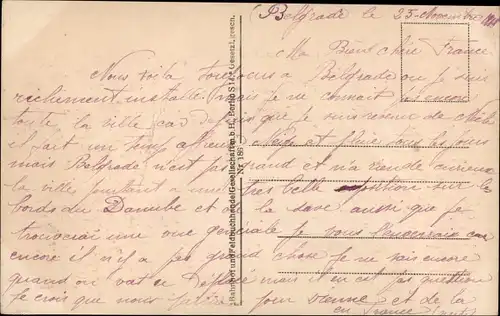 Belgrade le 25 Novembre
Ma Bien Chère France
Nous voilà toujours à Belgrade ou je suis
installé mais je ne connait pas encore
toute la ville car depuis que je suis revenu de
il fait un temps affreux Neige et pluie tous les jours
mais Belgrade n'est pas grand et n'a rien de curieux
la ville pourtant a une très belle position sur les
bords du Danube et de la save aussi que je
trouverai une vue generale je vous l'enverrais car
encore il n'y a pas grand chose je ne sais encore
quand on vat se déplacé mais il en est pas question
je crois que nous pour vienne et de la
en France
Bahnhof und Feldbuchhandel Gesellschaft m. b. H., Berlin S 14. Gesetzl. gesch.
Nr. 186